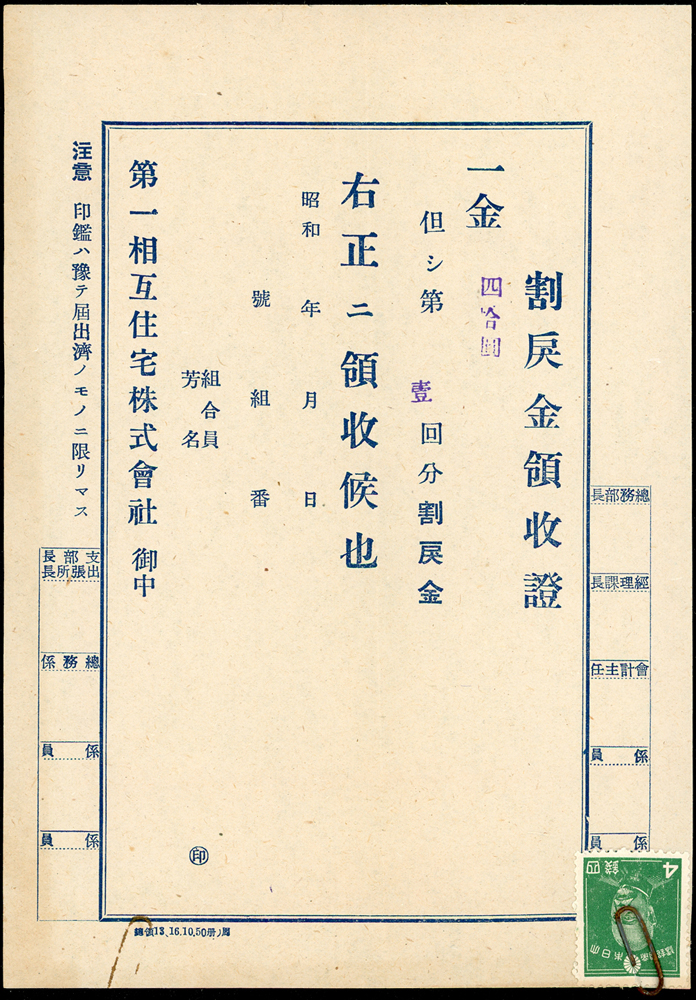 割戻金領收證
一金 四拾圓
但シ第 壹 回分割戻金
右正ニ領收候也
昭和 年 月 日
號 組 番
組合員
芳名
印
第一相互住宅株式會社 御中
注意 印鑑ハ豫テ届出濟ノモノニ限リマス
總務部長
經理課長
會計主任
係員
係員
支部長
出張所長
總務係
係員
係員
13、16.10,50冊
4
四錢
大日本帝國郵便